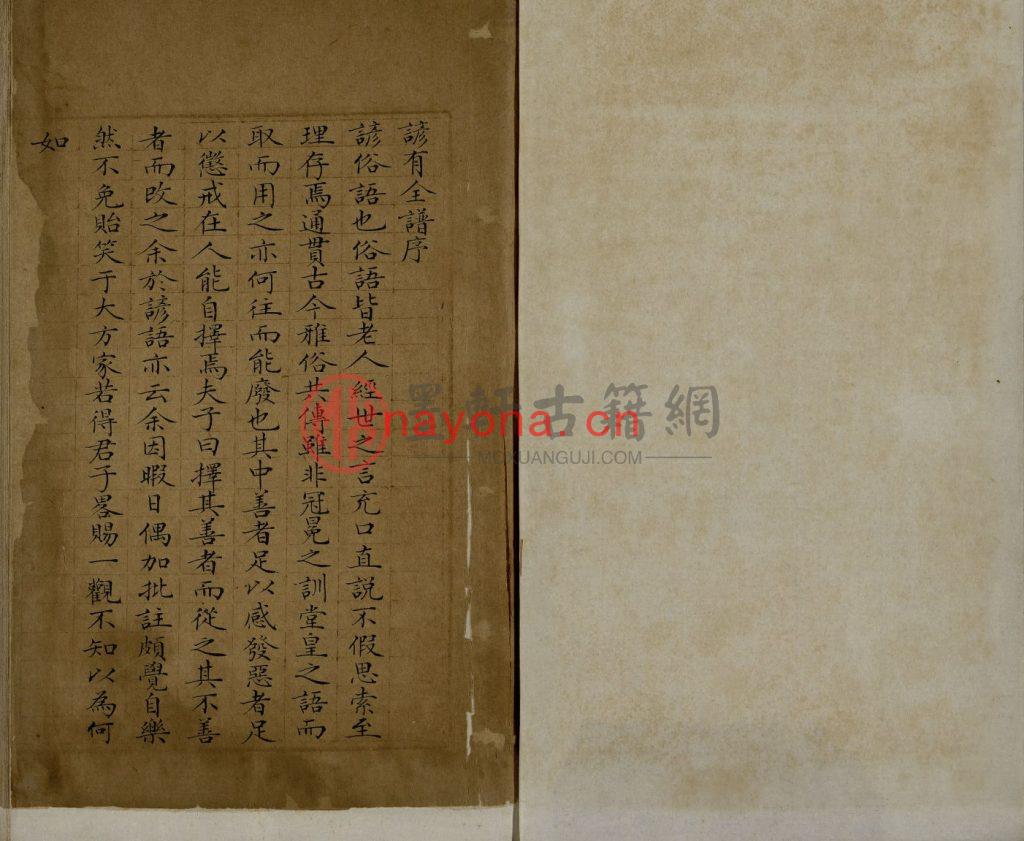 諺有全譜序
諺俗語也俗語皆老人經世之言充口直説不假思索至
理存焉通貫古今雅俗共傳雖非冠冕之訓堂皇之語而
取而用之亦何往而能廢也其中善者足以感發惡者足
以懲戒在人能自擇焉夫子曰擇其善者而從之其不善
者而改之余於諺語亦云余因暇日偶加批註頗覺自樂
然不免貽笑于大方家若得君子畧賜一觀不知以為何
如
墨軒古籍網
nayona.cn
MOXUANGUJI.COM